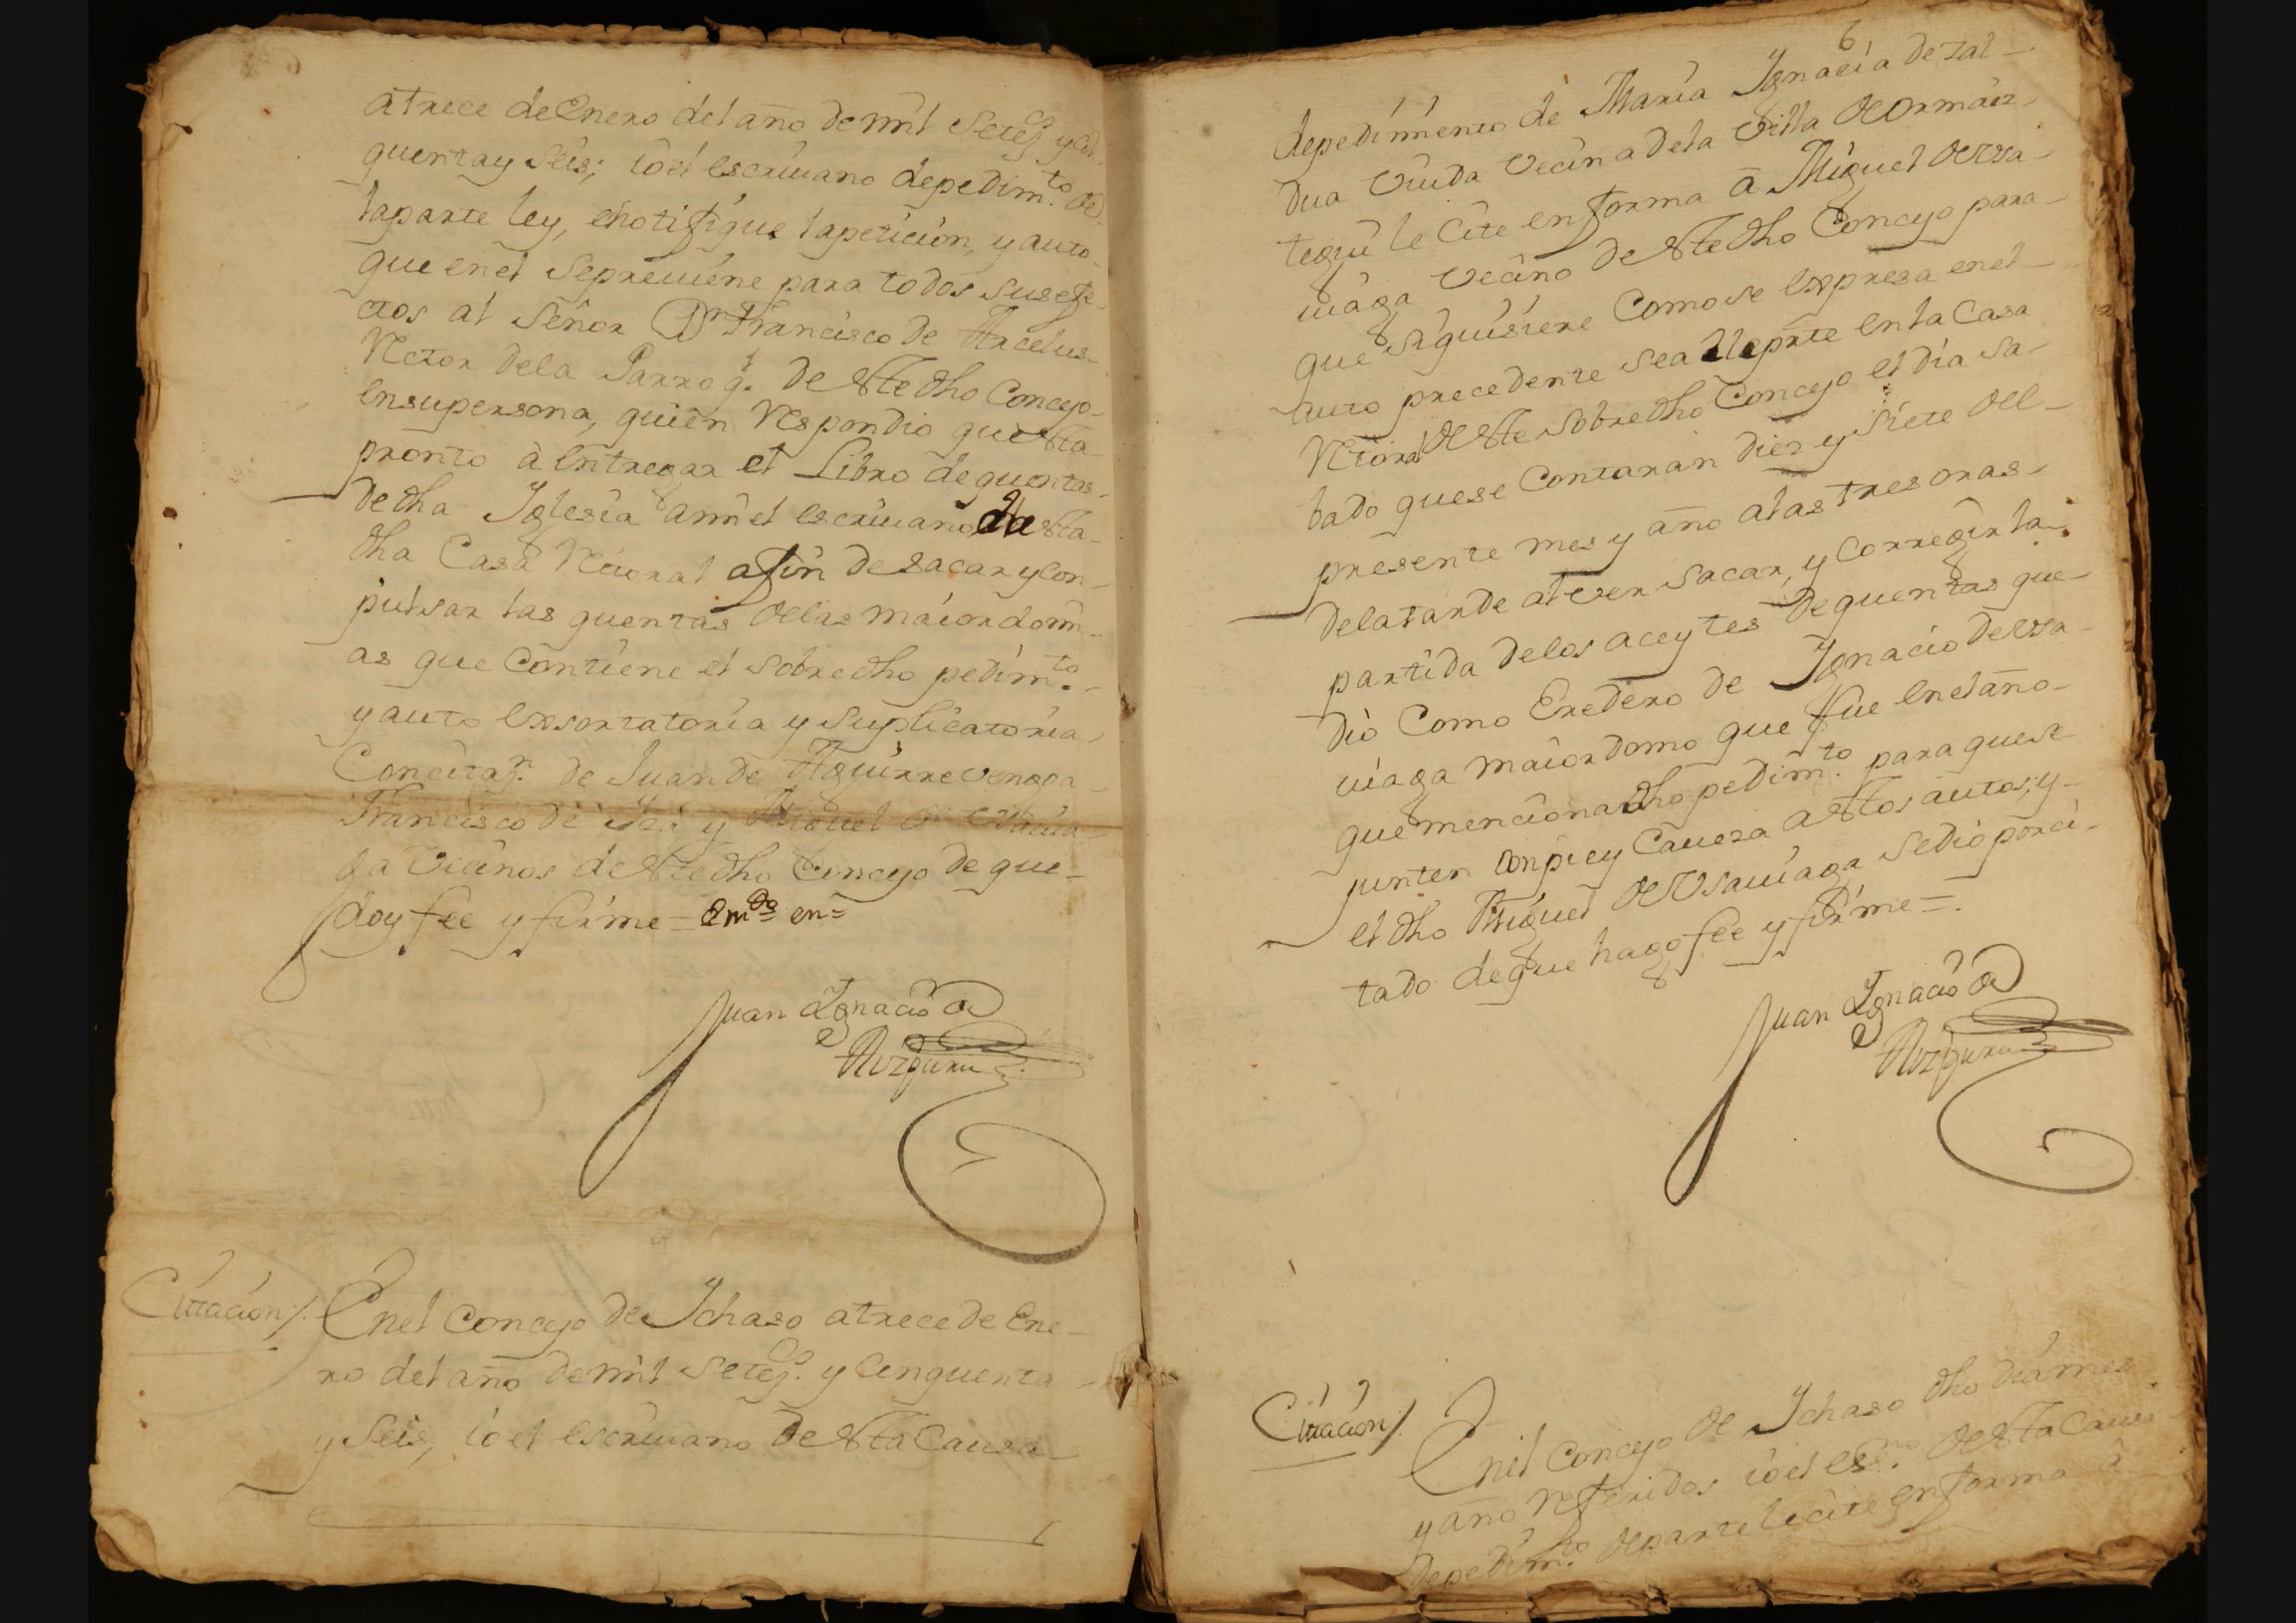 atrece de Enero del año de mil Setez.os y Cin-
quenta y Seis; io el escriuano depedim.to de
la parte ley, e notifique la peticion, y auto
que en el Sepreuiene para todos sus efe-
ctos al Señor Dn Francisco de Arcelus
Rector dela Parroq.l de este dho Concejo
en supersona, quien Respondio que esta
pronto à entregar el Libro de quentas
de dha Iglesia ami el escriuano de esta
dha Casa Rectoral afin de sacar y con-
pulsar las quentas de las maiordomi-
as que Contiene el sobredho pedim.to
y auto exsortatoria y suplicatoria,
Concitaz.n de Juan de Aguirrevengoa
Francisco de Iza y Miguel de Usauia-
ga Vecinos de este dho Concejo de que
doy fee y firme = Em.do en=
Juan Ignacio de
Aizpuru
Citacion/. En el Concejo de Ichaso atrece de Ene-
ro del año de mil Setez.os y Cinquenta
y Seis, io el escriuano de esta Causa
6
depedimiento de Maria Ignacia de Zal-
dua Viuda Vecina dela Villa de Ormaiz-
tegui le Cite en forma a Miguel de Usa-
uiaga Vecino de este dho Concejo para
que si quisiere Como se expresa en el
auto precedente sea lleparte en la Casa
Retoral de este sobredho Concejo el dia sa-
bado que se Contaran diez y siete del
presente mes y año alas tres oras
dela tarde al ver sacar, y Corregir la
partida delos aceytes de quentas que
dio Como Eredero de Ignacio de Usa-
uiaga maiordomo que fue en el año
que menciona dho pedim.to para que se
junten Conpie y Caueza a estos autos, y
el dho Miguel de Usauiaga sedio por ci-
tado de que hago fee y firme =
Juan Ignacio de
Aizpuru
Citacion/. En el Concejo de Ichaso dho dia mes
y año Referidos io el es.no de esta Caus
depedim.to de parte le cite en forma à